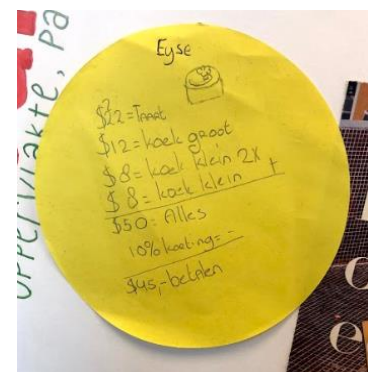 Eyse
$22=Taart
$12=koek groot
$8=koek klein 2x
$8=koek klein +
$50= Alles
10% korting= -
$45,- betalen
OPPERVLAKTE, PA
C
e